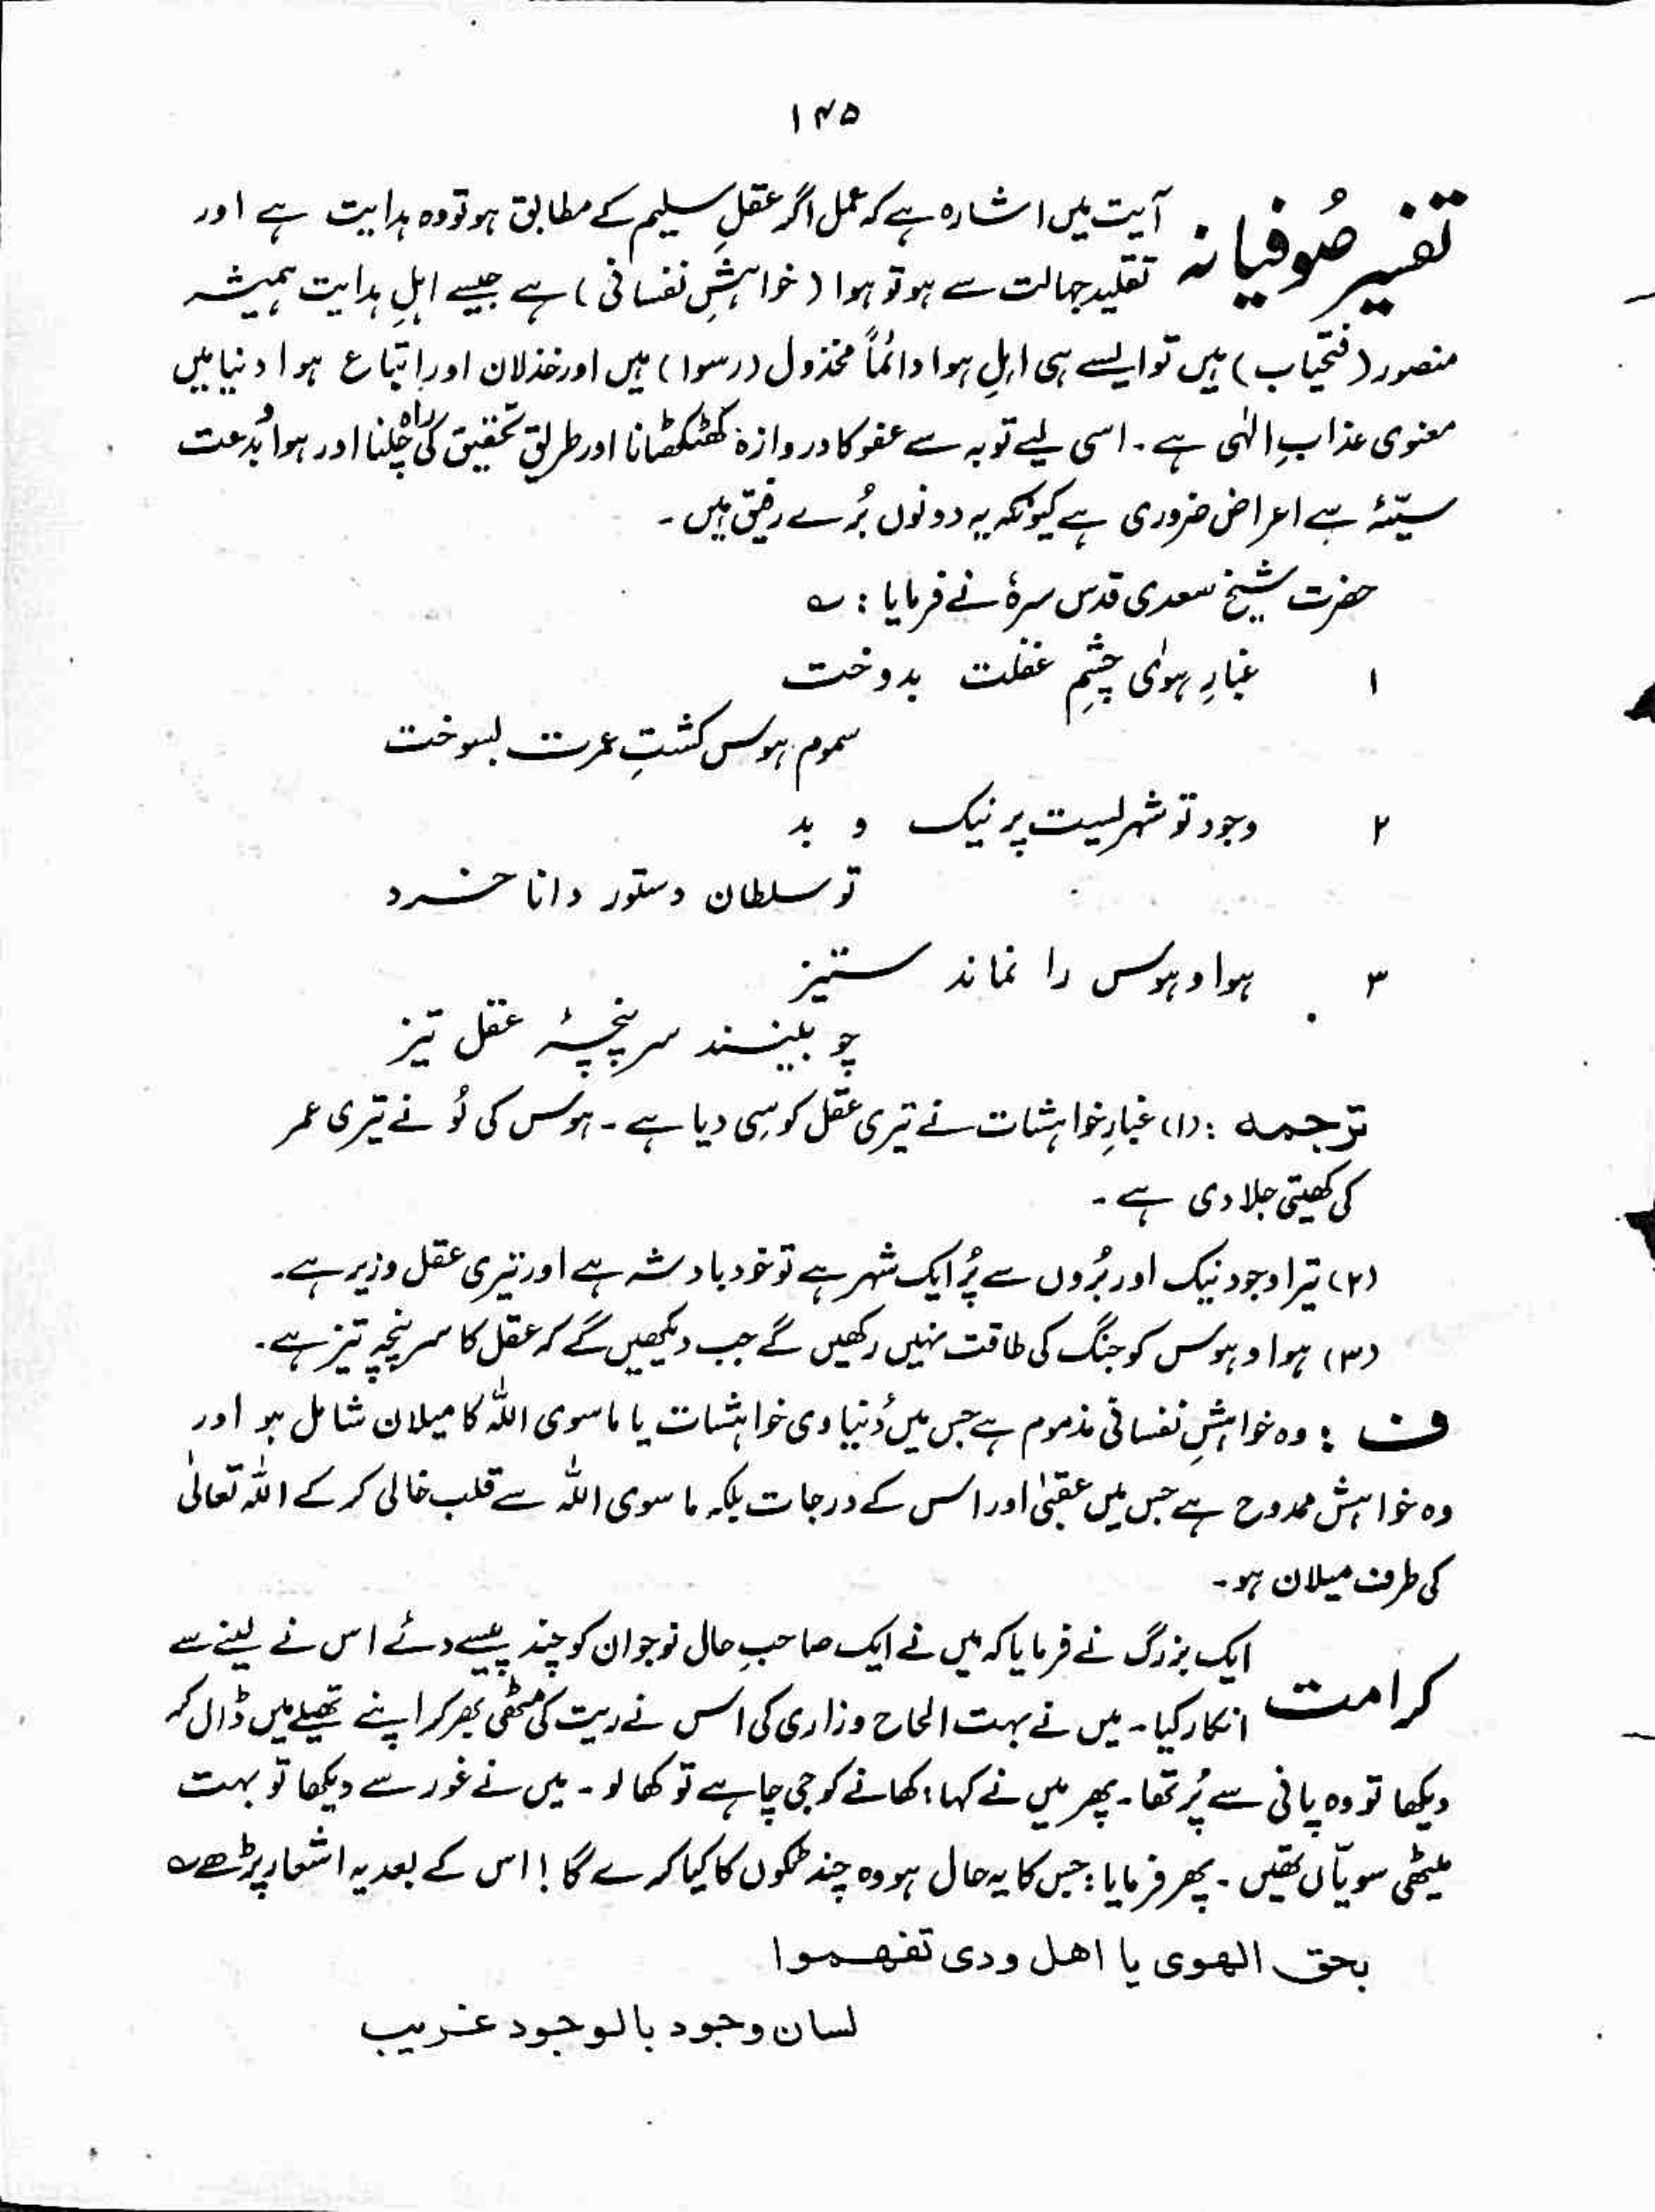 ۱۴۵
تفسیر صُوفیانہ
آیت میں اشارہ ہے کہ عمل اگر عقلِ سلیم کے مطابق ہو تو وہ ہدایت ہے اور
تقلید جہالت سے ہو تو ہوا (خواہشِ نفسانی) ہے جیسے اہلِ ہدایت ہمیشہ
منصور (فتحیاب) ہیں تو ایسے ہی اہلِ ہوا دائماً مخذول (رسوا) ہیں اور خذلان اور اتباع ہوا دنیا میں
معنوی عذابِ الٰہی ہے۔ اسی لیے توبہ سے عفو کا دروازہ کھٹکھٹانا اور طریقِ تحقیق کی راہ چلنا اور ہوا و بُدعت
سیّئہ سے اعراض ضروری ہے کیونکہ یہ دونوں بُرے رفیق ہیں۔
حضرت شیخ سعدی قدس سرہٗ نے فرمایا : ؎
۱ غبارِ ہوٰی چشمِ غفلت بدوخت
سموم ہوس کشتِ عمرت بسوخت
۲ وجود تو شہریست پر نیک و بد
تو سلطان دستور دانا خرد
۳ ہوا و ہوس را نماند ستیز
چو بینند سرپنچۂ عقل تیز
ترجمہ : (۱) غبارِ خواہشات نے تیری عقل کو سِی دیا ہے۔ ہوس کی لُو نے تیری عمر
کی کھیتی جلا دی ہے۔
(۲) تیرا وجود نیک اور بُروں سے پُر ایک شہر ہے تو خود بادشہ ہے اور تیری عقل وزیر ہے۔
(۳) ہوا و ہوس کو جنگ کی طاقت نہیں رکھیں گے جب دیکھیں گے کہ عقل کا سرپنچہ تیز ہے۔
ف : وہ خواہشِ نفسانی مذموم ہے جس میں دُنیاوی خواہشات یا ماسوی اللہ کا میلان شامل ہو اور
وہ خواہش ممدوح ہے جس میں عقبیٰ اور اس کے درجات بلکہ ماسوی اللہ سے قلب خالی کر کے اللہ تعالیٰ
کی طرف میلان ہو۔
کرامت
ایک بزرگ نے فرمایا کہ میں نے ایک صاحبِ حال نوجوان کو چند پیسے دئے اس نے لینے سے
انکار کیا۔ میں نے بہت الحاح و زاری کی اس نے ریت کی مٹھی بھر کر اپنے تھیلے میں ڈال کر
دیکھا تو وہ پانی سے پُر تھا۔ پھر میں نے کہا : کھانے کو جی چاہے تو کھا لو۔ میں نے غور سے دیکھا تو بہت
میٹھی سویّاں تھیں۔ پھر فرمایا : جس کا یہ حال ہو وہ چند ٹکوں کا کیا کرے گا ! اس کے بعد یہ اشعار پڑھے ؎
بحق الھوی یا اھل ودی تفھموا
لسان وجود بالوجود غریب